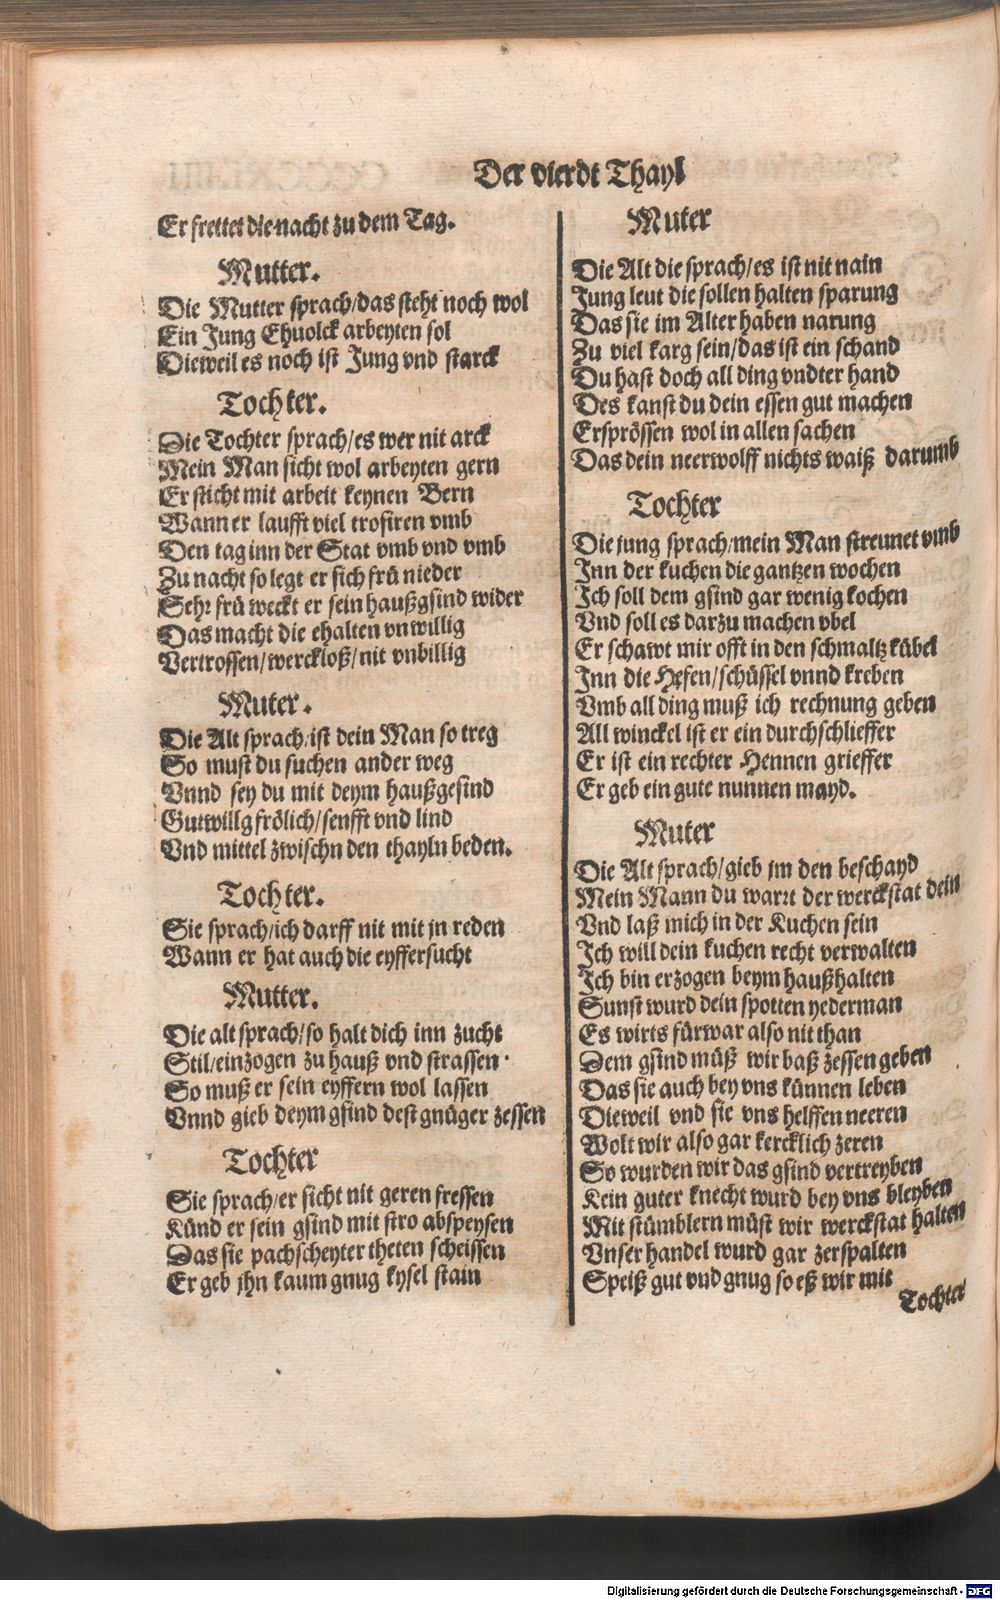 Der vierdt Thayl
Er frettet die nacht zu dem Tag.
Mutter.
Die Mutter sprach/das steht noch wol
Ein Jung Ehuolck arbeyten sol
Dieweil es noch ist Jung vnd starck
Tochter.
Die Tochter sprach/es wer nit arck
Mein Man sicht wol arbeyten gern
Er sticht mit arbeit keynen Bern
Wann er laufft viel trosiren vmb
Den tag inn der Stat vmb vnd vmb
Zu nacht so legt er sich frü nieder
Sehr frü weckt er sein haußgsind wider
Das macht die ehalten vnwillig
Vertrossen/werckloß/nit vnbillig
Muter.
Die Alt sprach/ist dein Man so treg
So must du suchen ander weg
Vnnd sey du mit deym haußgesind
Gutwillg frölich/senfft vnd lind
Vnd mittel zwischn den thayln beden.
Tochter.
Sie sprach/ich darff nit mit jn reden
Wann er hat auch die eyffersucht
Mutter.
Die alt sprach/so halt dich inn zucht
Stil/einzogen zu hauß vnd strassen.
So muß er sein eyffern wol lassen
Vnnd gieb deym gsind dest gnüger zessen
Tochter
Sie sprach/er sicht nit geren fressen
Künd er sein gsind mit stro abspeysen
Das sie pachscheyter theten scheissen
Er geb jhn kaum gnug kysel stain
Muter
Die Alt die sprach/es ist nit nain
Jung leut die sollen halten sparung
Das sie im Alter haben narung
Zu viel karg sein/das ist ein schand
Du hast doch all ding vndter hand
Des kanst du dein essen gut machen
Ersprössen wol in allen sachen
Das dein neerwolff nichts waiß darumb
Tochter
Die jung sprach/mein Man streunet vmb
Inn der kuchen die gantzen wochen
Ich soll dem gsind gar wenig kochen
Vnd soll es darzu machen vbel
Er schawt mir offt in den schmaltz kübel
Inn die Hefen/schüssel vnnd kreben
Vmb all ding muß ich rechnung geben
All winckel ist er ein durchschlieffer
Er ist ein rechter Hennen grieffer
Er geb ein gute nunnen mayd.
Muter
Die Alt sprach/gieb jm den beschayd
Mein Mann du wart der werckstat dein
Vnd laß mich in der Kuchen sein
Ich will dein kuchen recht verwalten
Ich bin erzogen beym haußhalten
Sunst wurd dein spotten yederman
Es wirts fürwar also nit than
Dem gsind müß wir baß zessen geben
Das sie auch bey vns künnen leben
Dieweil vnd sie vns helffen neeren
Wolt wir also gar kercklich zeren
So wurden wir das gsind vertreyben
Kein guter knecht wurd bey vns bleyben
Mit stümblern müst wir werckstat halten
Vnser handel wurd gar zerspalten
Speiß gut vnd gnug so eß wir mit
Tochter
Digitalisierung gefördert durch die Deutsche Forschungsgemeinschaft - DFG